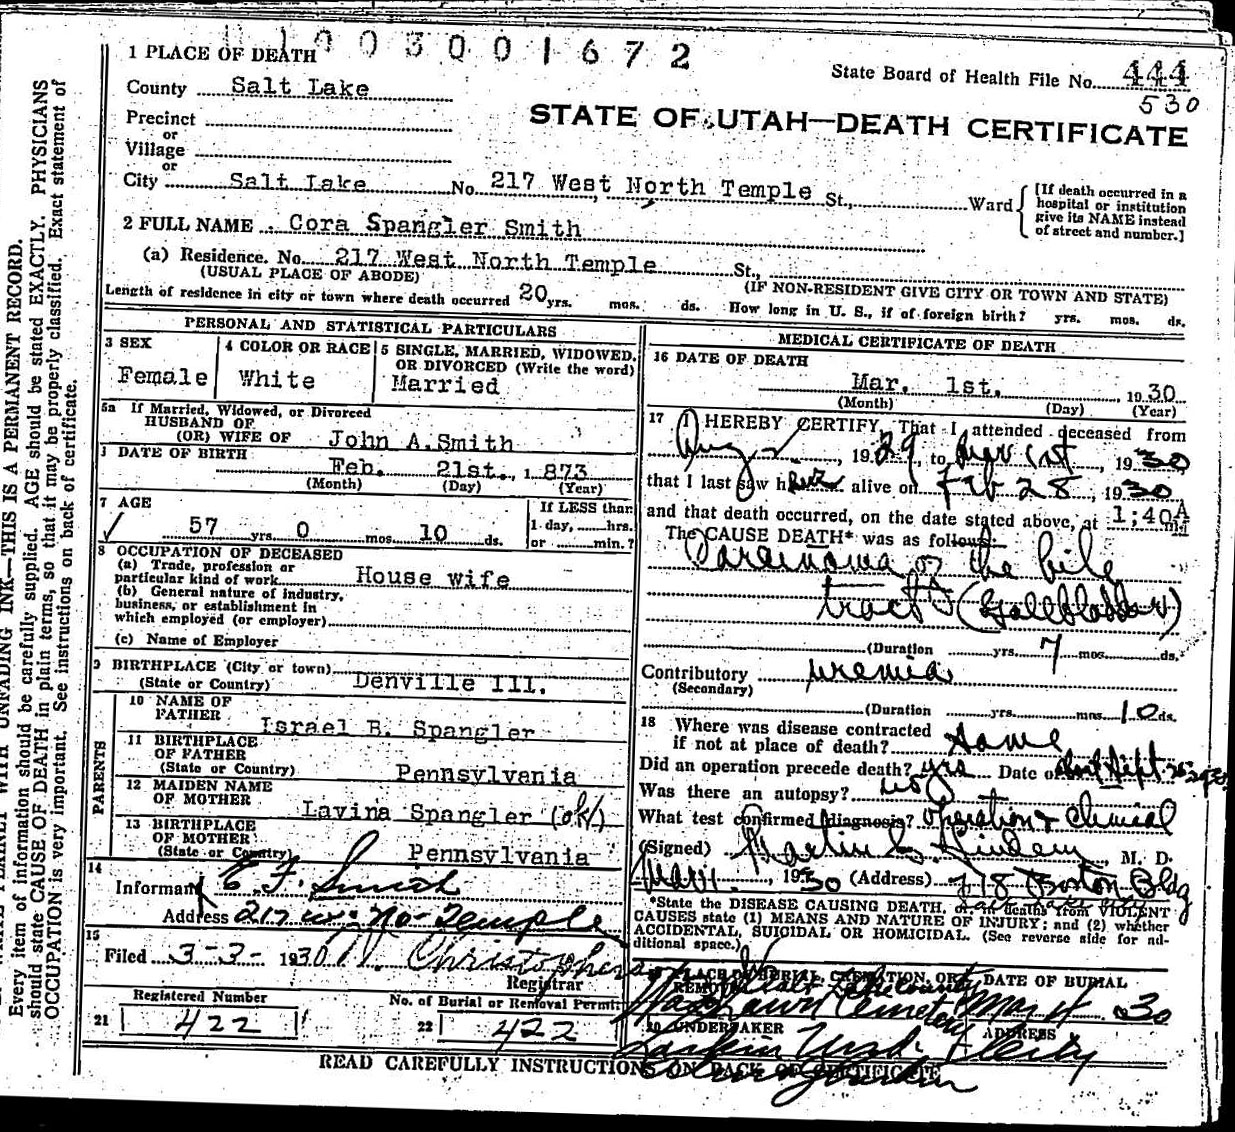 1003001672
1 PLACE OF DEATH
State Board of Health File No. 444
530
County Salt Lake
STATE OF UTAH—DEATH CERTIFICATE
Precinct
or
Village
or
City Salt Lake No. 217 West North Temple St., Ward
[If death occurred in a
hospital or institution
give its NAME instead
of street and number.]
2 FULL NAME Cora Spangler Smith
(a) Residence. No. 217 West North Temple St.,
(USUAL PLACE OF ABODE) (IF NON-RESIDENT GIVE CITY OR TOWN AND STATE)
Length of residence in city or town where death occurred 20 yrs. mos. ds. How long in U. S., if of foreign birth? yrs. mos. ds.
PERSONAL AND STATISTICAL PARTICULARS
3 SEX Female
4 COLOR OR RACE White
5 SINGLE, MARRIED, WIDOWED, OR DIVORCED (Write the word)
Married
5a If Married, Widowed, or Divorced
HUSBAND OF
(OR) WIFE OF John A. Smith
DATE OF BIRTH
Feb. 21st., 1873
(Month) (Day) (Year)
7 AGE
57 yrs. 0 mos. 10 ds.
If LESS than
1 day, hrs.
or min.?
8 OCCUPATION OF DECEASED
(a) Trade, profession or
particular kind of work House wife
(b) General nature of industry,
business, or establishment in
which employed (or employer)
(c) Name of Employer
9 BIRTHPLACE (City or town)
(State or Country) Denville Ill.
PARENTS
10 NAME OF
FATHER Israel B. Spangler
11 BIRTHPLACE
OF FATHER
(State or Country) Pennsylvania
12 MAIDEN NAME
OF MOTHER Lavina Spangler (ok)
13 BIRTHPLACE
OF MOTHER
(State or Country) Pennsylvania
14
Informant E F. Smith
Address 217 W. No. Temple
15
Filed 3-3- 1930
Registrar
Registered Number
21 422
No. of Burial or Removal Permit
22 422
MEDICAL CERTIFICATE OF DEATH
16 DATE OF DEATH
Mar. 1st. 1930
(Month) (Day) (Year)
17 I HEREBY CERTIFY, That I attended deceased from
Aug 1929, to Mar 1st, 1930
that I last saw her alive on Feb 28, 1930
and that death occurred, on the date stated above, at 1:40A m.
The CAUSE DEATH* was as follows:
Carcinoma of the bile
tract (Gallbladder)
(Duration yrs. 7 mos. ds.
Contributory uremia
(Secondary)
(Duration yrs. mos. 10 ds.
18 Where was disease contracted
if not at place of death? Home
Did an operation precede death? yes Date of Sept
Was there an autopsy? no
What test confirmed diagnosis? operation & clinical
(Signed) M. D.
Mar 1930 (Address) 718 Boston Bldg
Salt Lake City
*State the DISEASE CAUSING DEATH, or, in deaths from VIOLENT
CAUSES state (1) MEANS AND NATURE OF INJURY; and (2) whether
ACCIDENTAL, SUICIDAL OR HOMICIDAL. (See reverse side for additional space.)
PLACE OF BURIAL, CREMATION, OR REMOVAL
Salt Lake County
Cemetery
DATE OF BURIAL
Mar 4 30
20 UNDERTAKER
Larkin Und.
ADDRESS
City
READ CAREFULLY INSTRUCTIONS ON BACK OF CERTIFICATE
WRITE PLAINLY WITH UNFADING INK—THIS IS A PERMANENT RECORD.
Every item of information should be carefully supplied. AGE should be stated EXACTLY. PHYSICIANS
should state CAUSE OF DEATH in plain terms, so that it may be properly classified. Exact statement of
OCCUPATION is very important. See instructions on back of certificate.